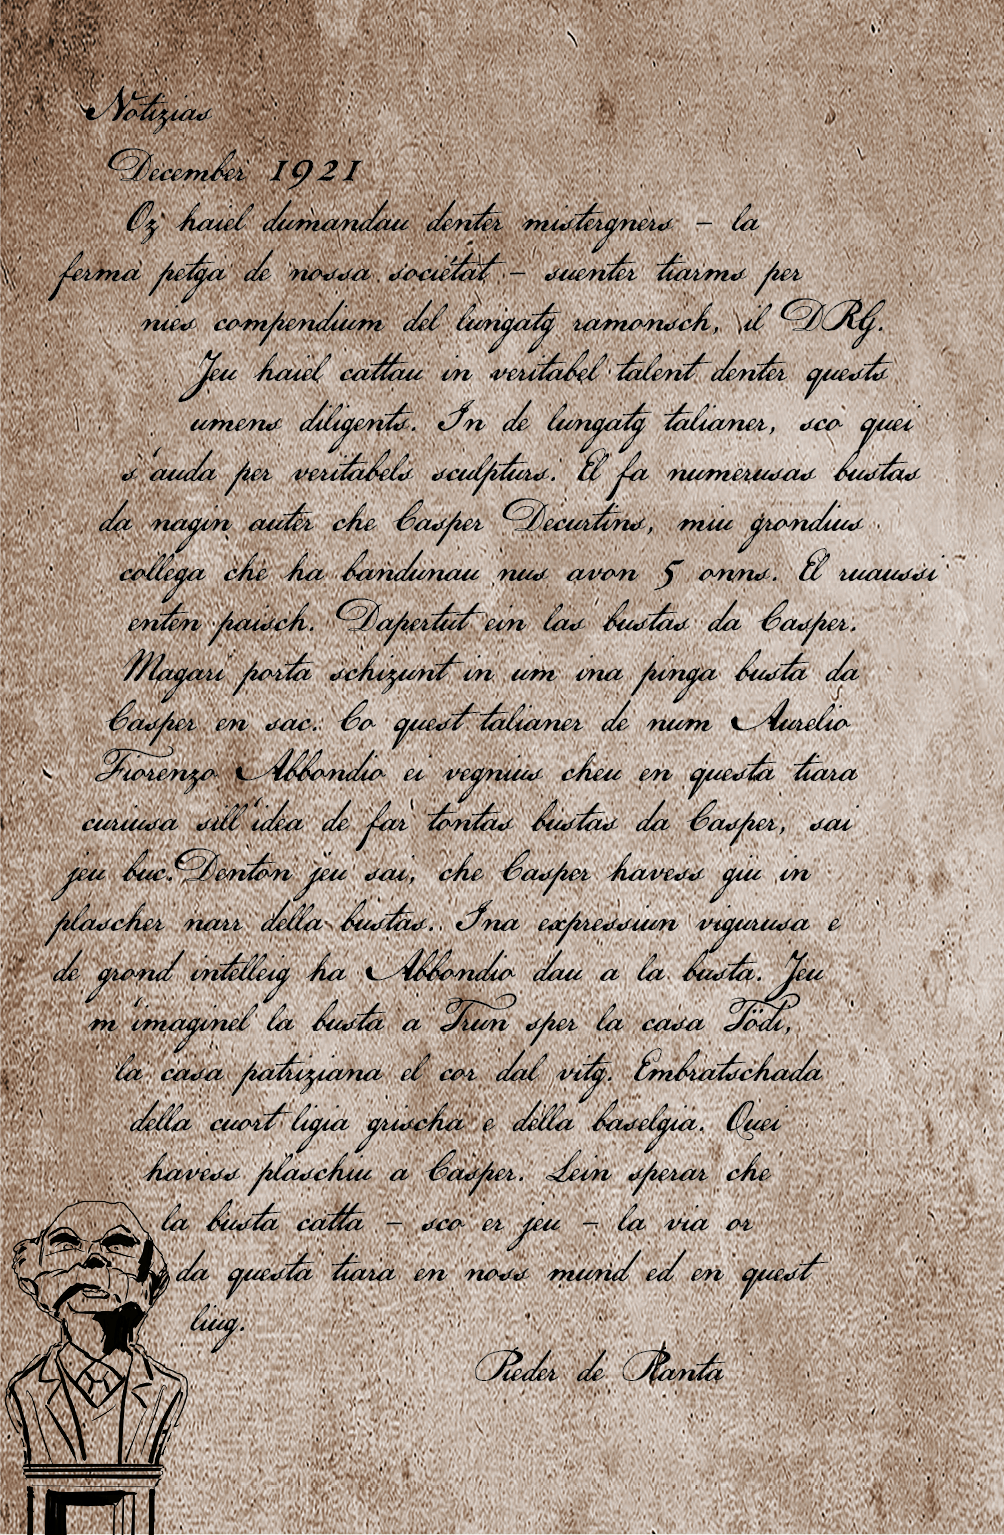 Notizias
December 1921
Oz haiel dumandau denter mistergners – la
ferma petga de nossa societat – suenter tiarms per
mies compendium del lungatg ramonsch, il DRG.
Jeu haiel cattau in veritabel talent denter quests
umens diligents. In de lungatg talianer, sco quei
s'auda per veritabels sculpturs. El fa numerusas bustas
da nagin auter che Casper Decurtins, miu grondius
collega che ha bandunau nus avon 5 onns. El ruaussi
enten paisch. Dapertut ein las bustas da Casper.
Magari porta schizunt in um ina pinga busta da
Casper en sac. Co quest talianer de num Aurelio
Fiorenzo Abbondio ei vegnius cheu en questa tiara
curiusa sill'idea de far tontas bustas da Casper, sai
jeu buc. Denton jeu sai, che Casper havess giu in
plascher narr della bustas. Ina expressiun vigurusa e
de grond intelleig ha Abbondio dau a la busta. Jeu
m'imaginel la busta a Trun sper la casa Tödi,
la casa patriziana el cor dal vitg. Embratschada
della cuort ligia grischa e della baselgia. Quei
havess plaschiu a Casper. Lein sperar che
la busta catta – sco er jeu – la via or
da questa tiara en noss mund ed en quest
liug.
Pieder de Planta